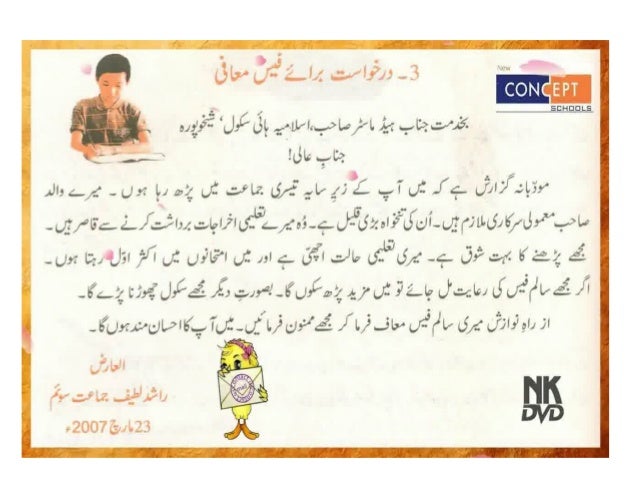 3۔ درخواست برائے فیس معافی
New
CONCEPT
SCHOOLS
بخدمت جناب ہیڈ ماسٹر صاحب، اسلامیہ ہائی سکول، شیخوپورہ
جنابِ عالی!
مودّبانہ گزارش ہے کہ میں آپ کے زیرِ سایہ تیسری جماعت میں پڑھ رہا ہوں۔ میرے والد
صاحب معمولی سرکاری ملازم ہیں۔ اُن کی تنخواہ بڑی قلیل ہے۔ وُہ میرے تعلیمی اخراجات برداشت کرنے سے قاصر ہیں۔
مجھے پڑھنے کا بہت شوق ہے۔ میری تعلیمی حالت اچھّی ہے اور میں امتحانوں میں اکثر اوّل رہتا ہوں۔
اگر مجھے سالم فیس کی رعایت مل جائے تو میں مزید پڑھ سکوں گا۔ بصورتِ دیگر مجھے سکول چھوڑنا پڑے گا۔
از راہِ نوازش میری سالم فیس معاف فرما کر مجھے ممنون فرمائیں۔ میں آپ کا احسان مند ہوں گا۔
العارض
راشد لطیف جماعت سوئم
23 مارچ 2007ء
NK
DVD